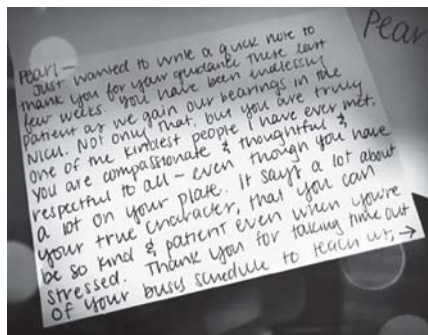 Pearl
Pearl—
Just wanted to write a quick note to
thank you for your guidance these last
few weeks. You have been endlessly
patient as we gain our bearings in the
NICU. Not only that, but you are truly
one of the kindest people I have ever met.
You are compassionate & thoughtful &
respectful to all— even though you have
a lot on your plate. It says a lot about
your true character, that you can
be so kind & patient even when you're
stressed. Thank you for taking time out
of your busy schedule to teach us, →